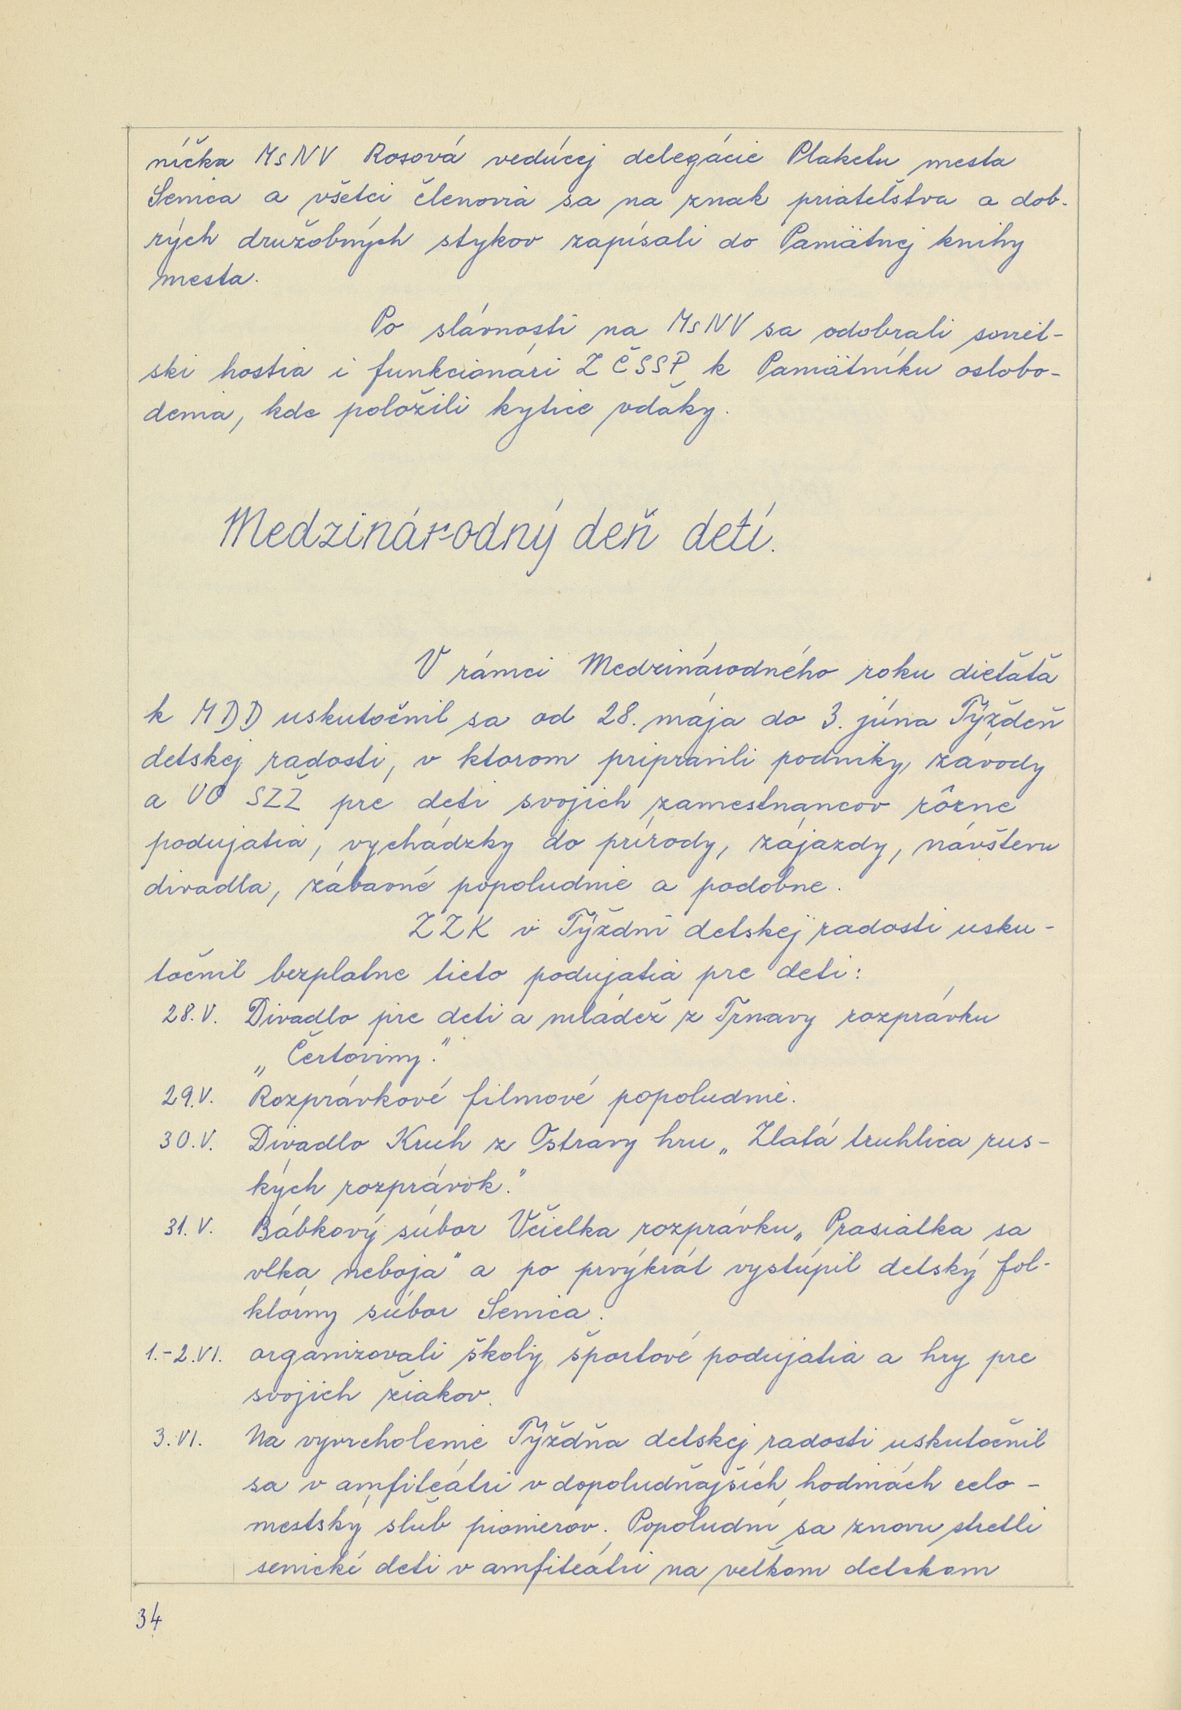 níčka MsNV Rosová vedúcej delegácie Plaketu mesta
Senica a všetci členovia sa na znak priateľstva a dob-
rých družobných stykov zapísali do Pamätnej knihy
mesta.
Po slávnosti na MsNV sa odobrali soviet-
ski hostia i funkcionári ZČSSP k Pamätníku oslobo-
denia, kde položili kytice vďaky.
Medzinárodný deň detí.
V rámci Medzinárodného roku dieťaťa
k MDD uskutočnil sa od 28. mája do 3. júna Týždeň
detskej radosti, v ktorom pripravili podniky, závody
a VO SZŽ pre deti svojich zamestnancov rôzne
podujatia, vychádzky do prírody, zájazdy, návštevu
divadla, zábavné popoludnie a podobne.
ZZK v Týždni detskej radosti usku-
točnil bezplatne tieto podujatia pre deti:
28. V. Divadlo pre deti a mládež z Trnavy rozprávku
„Čertoviny."
29. V. Rozprávkové filmové popoludnie.
30. V. Divadlo Kruh z Ostravy hru „Zlatá truhlica rus-
kých rozprávok."
31. V. Bábkový súbor Včielka rozprávku „Prasiatka sa
vlka neboja" a po prvýkrát vystúpil detský fol-
klórny súbor Senica.
1.-2. VI. organizovali školy športové podujatia a hry pre
svojich žiakov.
3. VI. Na vyvrcholenie Týždňa detskej radosti uskutočnil
sa v amfiteátri v dopoludňajších hodinách celo-
mestský sľub pionierov. Popoludní sa znovu stretli
senické deti v amfiteátri na veľkom detskom
34